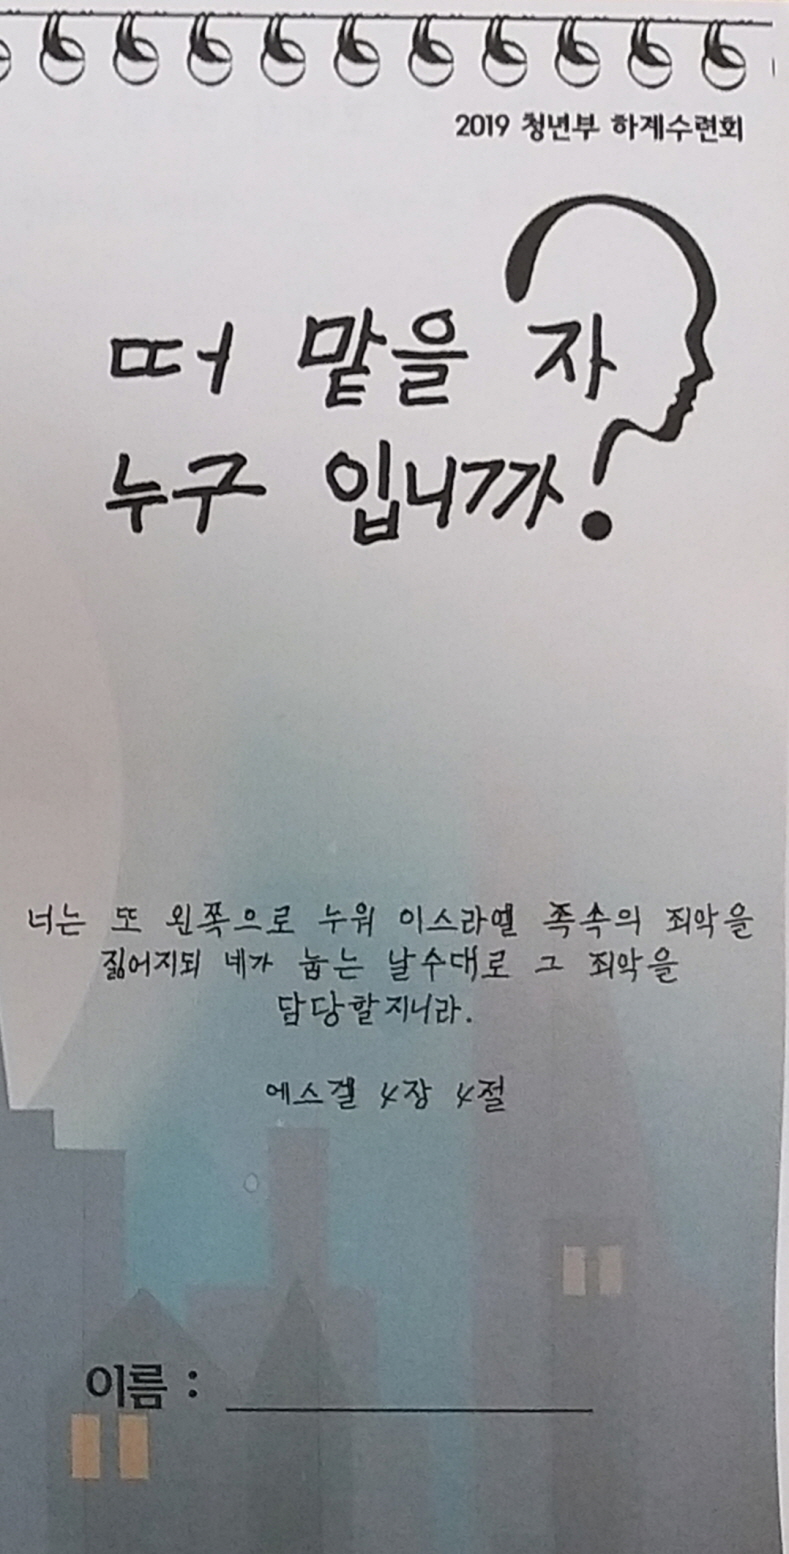 2019 청년부 하계수련회
떠 맡을 자
누구 입니까?
너는 또 왼쪽으로 누워 이스라엘 족속의 죄악을
짊어지되 네가 눕는 날수대로 그 죄악을
담당할지니라.
에스겔 4장 4절
이름 :